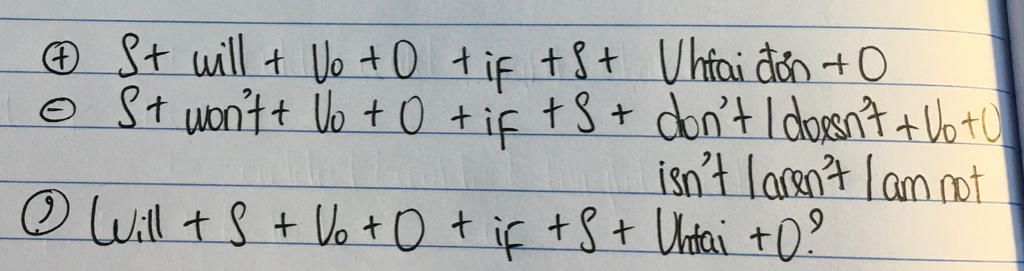 (+) S + will + Vo + O + if + S + Vhtại đơn + O
(-) S + won't + Vo + O + if + S + don't / doesn't + Vo + O
isn't / aren't / am not
(?) Will + S + Vo + O + if + S + Vhtại + O?